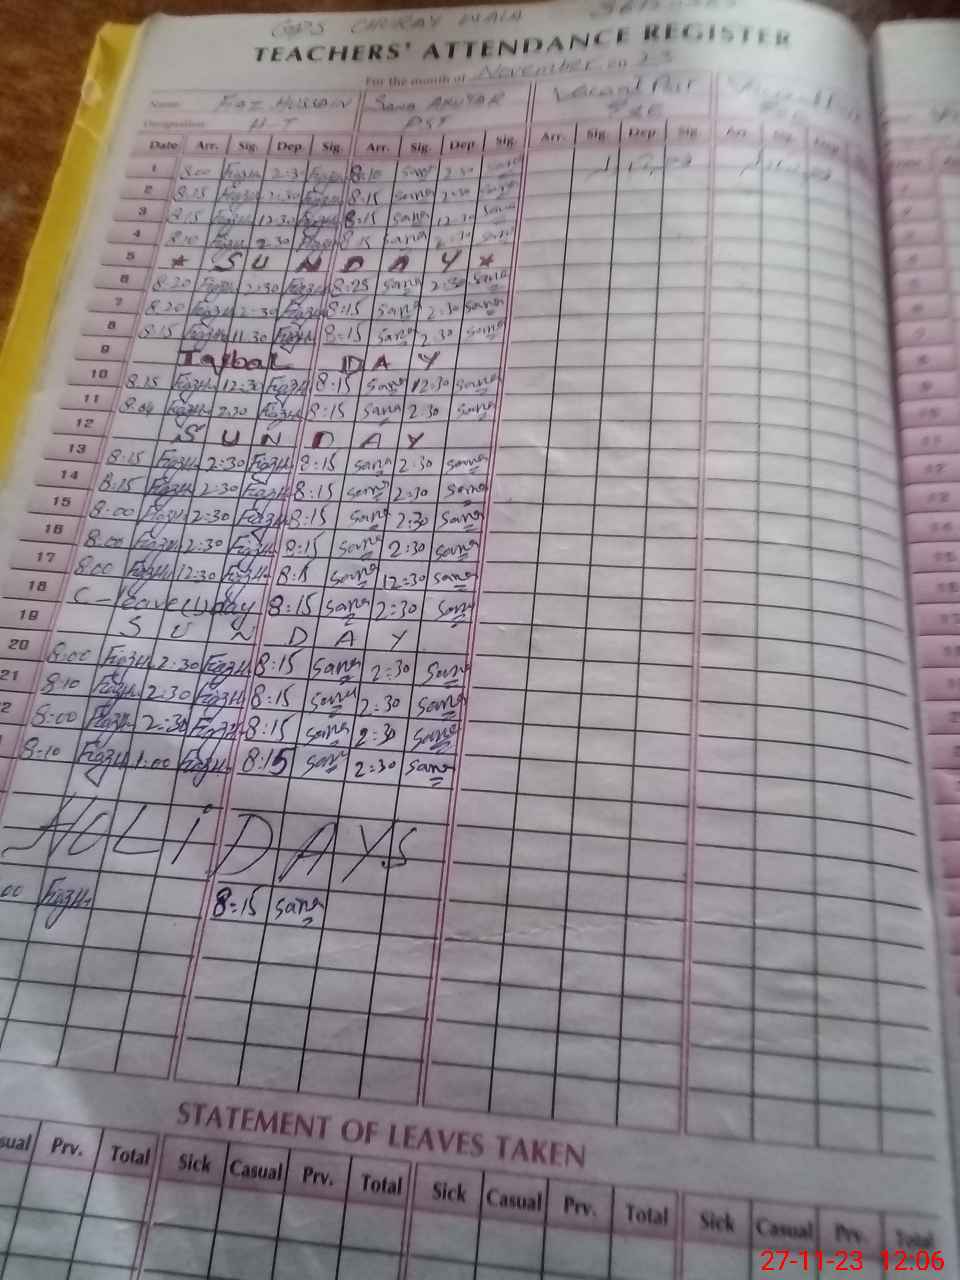 GPS
TEACHERS' ATTENDANCE REGISTER
For the month of November 23
Name Fiaz Hussain Sana Akhtar Vacant Post
Designation H-T PST
Date Arr. Sig. Dep. Sig. Arr. Sig. Dep Sig. Arr. Sig. Dep Sig. Arr Sig.
1 8:00 FiazH 2:30 FiazH 8:10 Sana 2:30 Sana
2 8:15 FiazH 2:30 FiazH 8:15 Sana 2:30 Sana
3 8:15 FiazH 12:30 FiazH 8:15 Sana 12:30 Sana
4 8:10 FiazH 2:30 FiazH 8:15 Sana Sana
5 * S U N D A Y *
6 8:20 FiazH 2:30 FiazH 8:25 Sana 2:30 Sana
7 8:20 FiazH 2:30 FiazH 8:15 Sana 2:30 Sana
8 8:15 FiazH 11:30 FiazH 8:15 Sana 2:30 Sana
9 Iqbal D A Y
10 8:15 FiazH 12:30 FiazH 8:15 Sana 12:30 Sana
11 FiazH 2:30 FiazH 8:15 Sana 2:30 Sana
12 S U N D A Y
13 8:15 FiazH 2:30 FiazH 8:15 Sana 2:30 Sana
14 8:15 FiazH 2:30 FiazH 8:15 Sana 2:30 Sana
15 8:00 FiazH 2:30 FiazH 8:15 Sana 2:30 Sana
16 8:00 FiazH 2:30 FiazH 8:15 Sana 2:30 Sana
17 8:00 FiazH 12:30 FiazH 8:15 Sana 12:30 Sana
18 C-leave (1) day 8:15 Sana 2:30 Sana
19 S U N D A Y
20 8:00 FiazH 2:30 FiazH 8:15 Sana 2:30 Sana
21 8:10 FiazH 2:30 FiazH 8:15 Sana 2:30 Sana
2 8:00 FiazH 2:30 FiazH 8:15 Sana 2:30 Sana
8:10 FiazH 1:00 FiazH 8:15 Sana 2:30 Sana
HOLiDAYS
00 FiazH 8:15 Sana
STATEMENT OF LEAVES TAKEN
sual Prv. Total Sick Casual Prv. Total Sick Casual Prv. Total Sick Casual Prv. Total
27-11-23 12:06